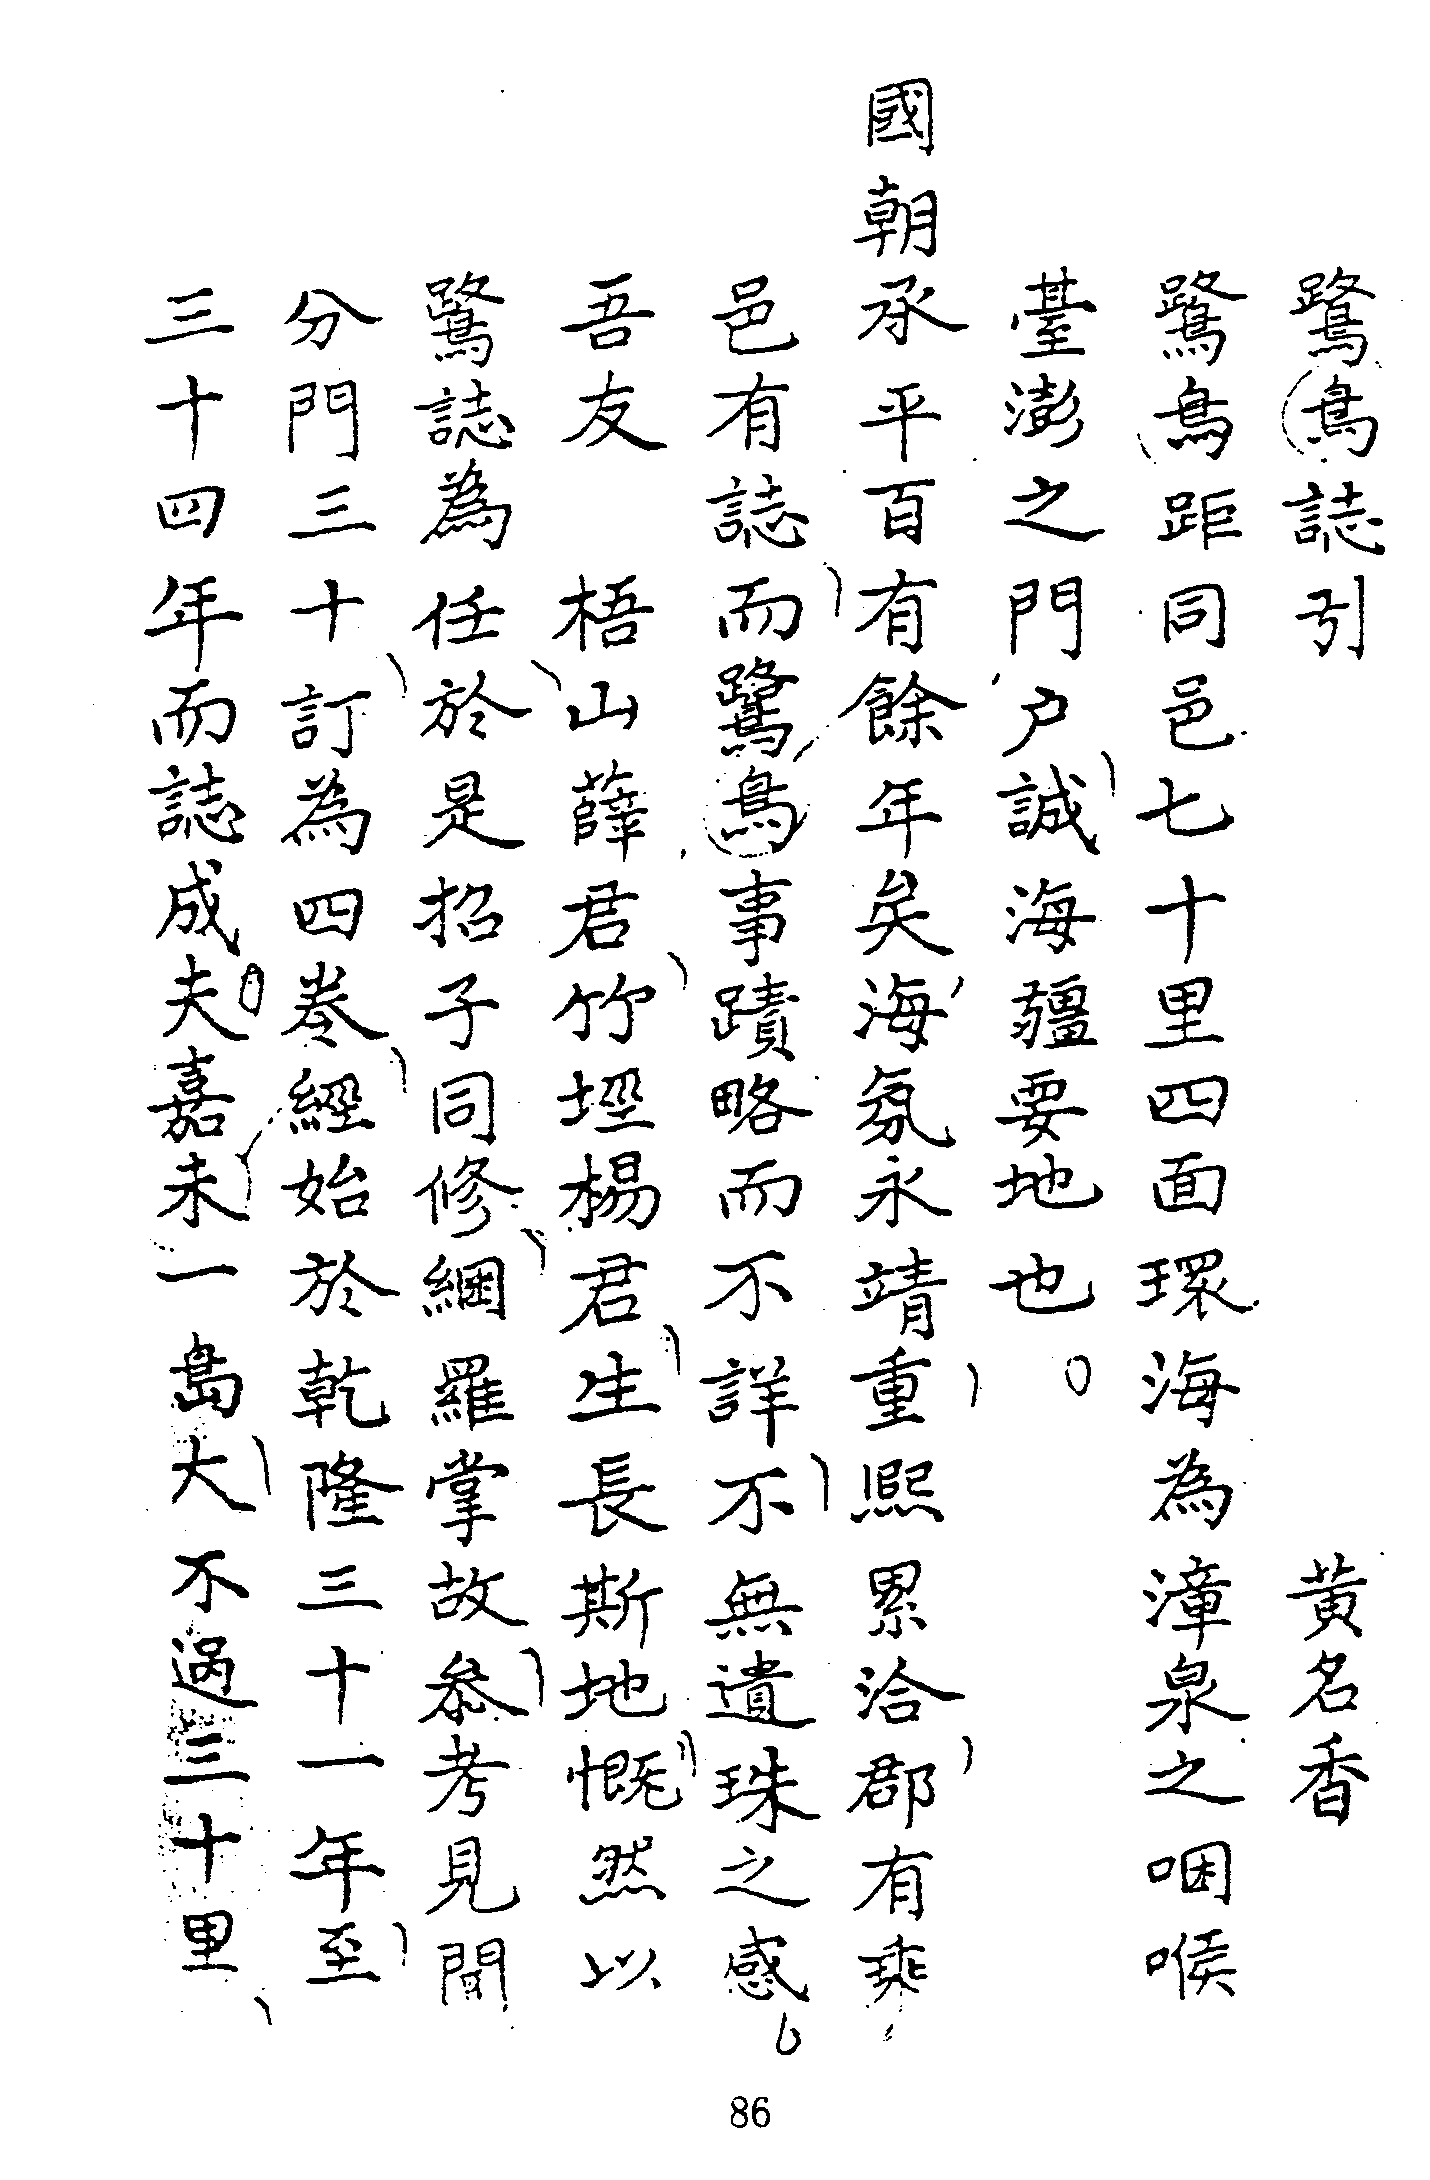 鷺島誌引　黃名香
鷺島距同邑七十里四面環海為漳泉之咽喉
臺澎之門户誠海疆要地也。
國朝承平百有餘年矣海氛永靖重熙累洽郡有乘
邑有誌而鷺島事蹟略而不詳不無遺珠之感
吾友　梧山薛君竹埕楊君生長斯地慨然以
鷺誌為任於是招子同修綑羅掌故叅考見聞
分門三十訂為四卷經始於乾隆三十一年至
三十四年而誌成夫嘉未一島大不過三十里
86